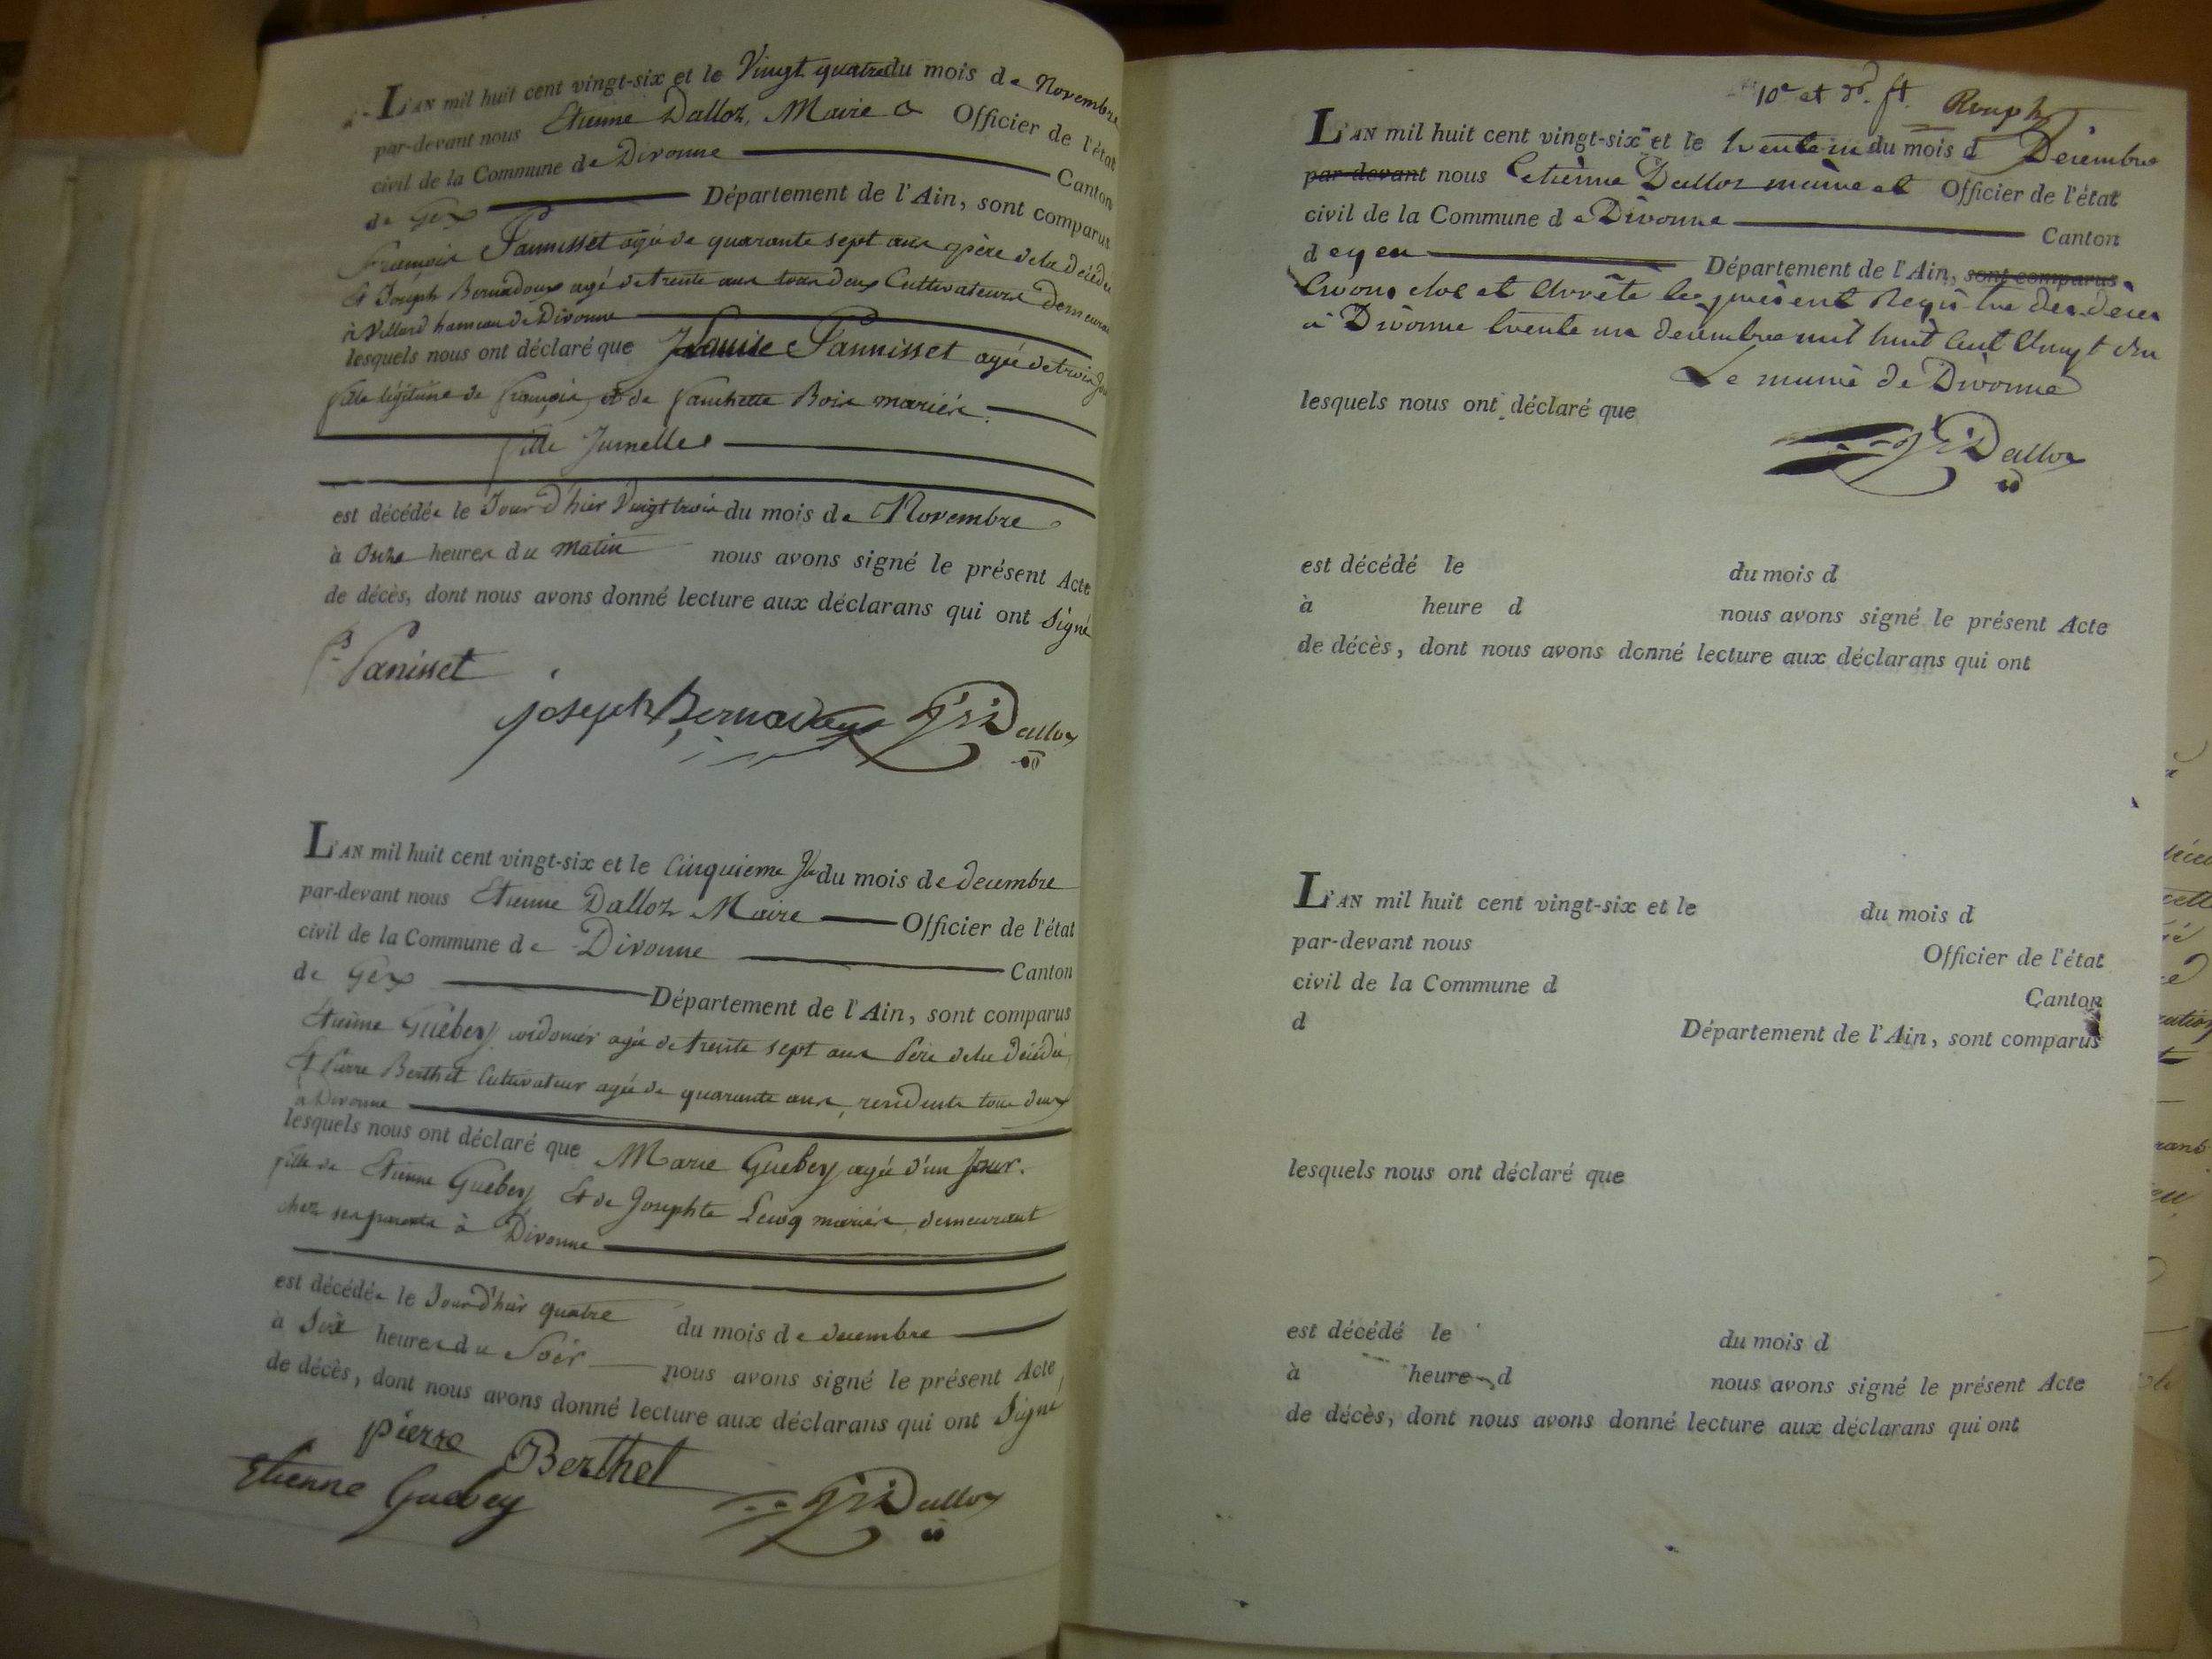 L'AN mil huit cent vingt-six et le Vingt quatre du mois de Novembre
par-devant nous Etienne Dalloz, Maire Officier de l'état
civil de la Commune de Divonne Canton
de Gex Département de l'Ain, sont comparus
François Pannisset agé de quarante sept ans père de la décédée
Et Joseph Bernadoux agé de trente ans tous deux Cultivateurs demeurant
à Villard hameau de Divonne
lesquels nous ont déclaré que Louise Pannisset agée de trois Jours
fille légitime de François et de Fanchette Bois mariés
fille Jumelle
est décédée le Jour d'hier Vingt trois du mois de Novembre
à Onze heures du matin nous avons signé le présent Acte
de décès, dont nous avons donné lecture aux déclarans qui ont Signé
Panisset
joseph Bernadoux Dalloz
L'AN mil huit cent vingt-six et le Cinquieme du mois de decembre
par-devant nous Etienne Dalloz Maire Officier de l'état
civil de la Commune de Divonne Canton
de Gex Département de l'Ain, sont comparus
Etienne Guébey cordonier agé de trente sept ans Père de la décédée
Et Pierre Berthet Cultivateur agé de quarante ans, tous deux
à Divonne
lesquels nous ont déclaré que Marie Guebey agée d'un Jour.
fille de Etienne Guébey Et de Josephte mariés, demeurant
chez ses parents à Divonne
est décédée le Jour d'hier quatre du mois de decembre
à Six heures du Soir nous avons signé le présent Acte
de décès, dont nous avons donné lecture aux déclarans qui ont Signé
pierre Berthet
Etienne Guebey Dalloz
10e et
L'AN mil huit cent vingt-six et le trente un du mois d Decembre
par-devant nous Etiènne Dalloz maire et Officier de l'état
civil de la Commune de Divonne Canton
de gex Département de l'Ain, sont comparus
Avons clos et Arrêté le présent Registre des deces
à Divonne trente un decembre mil huit Cent Vingt six
Le maire de Divonne
lesquels nous ont déclaré que
Dalloz
est décédé le du mois d
à heure d nous avons signé le présent Acte
de décès, dont nous avons donné lecture aux déclarans qui ont
L'AN mil huit cent vingt-six et le du mois d
par-devant nous Officier de l'état
civil de la Commune d Canton
d Département de l'Ain, sont comparus
lesquels nous ont déclaré que
est décédé le du mois d
à heure d nous avons signé le présent Acte
de décès, dont nous avons donné lecture aux déclarans qui ont